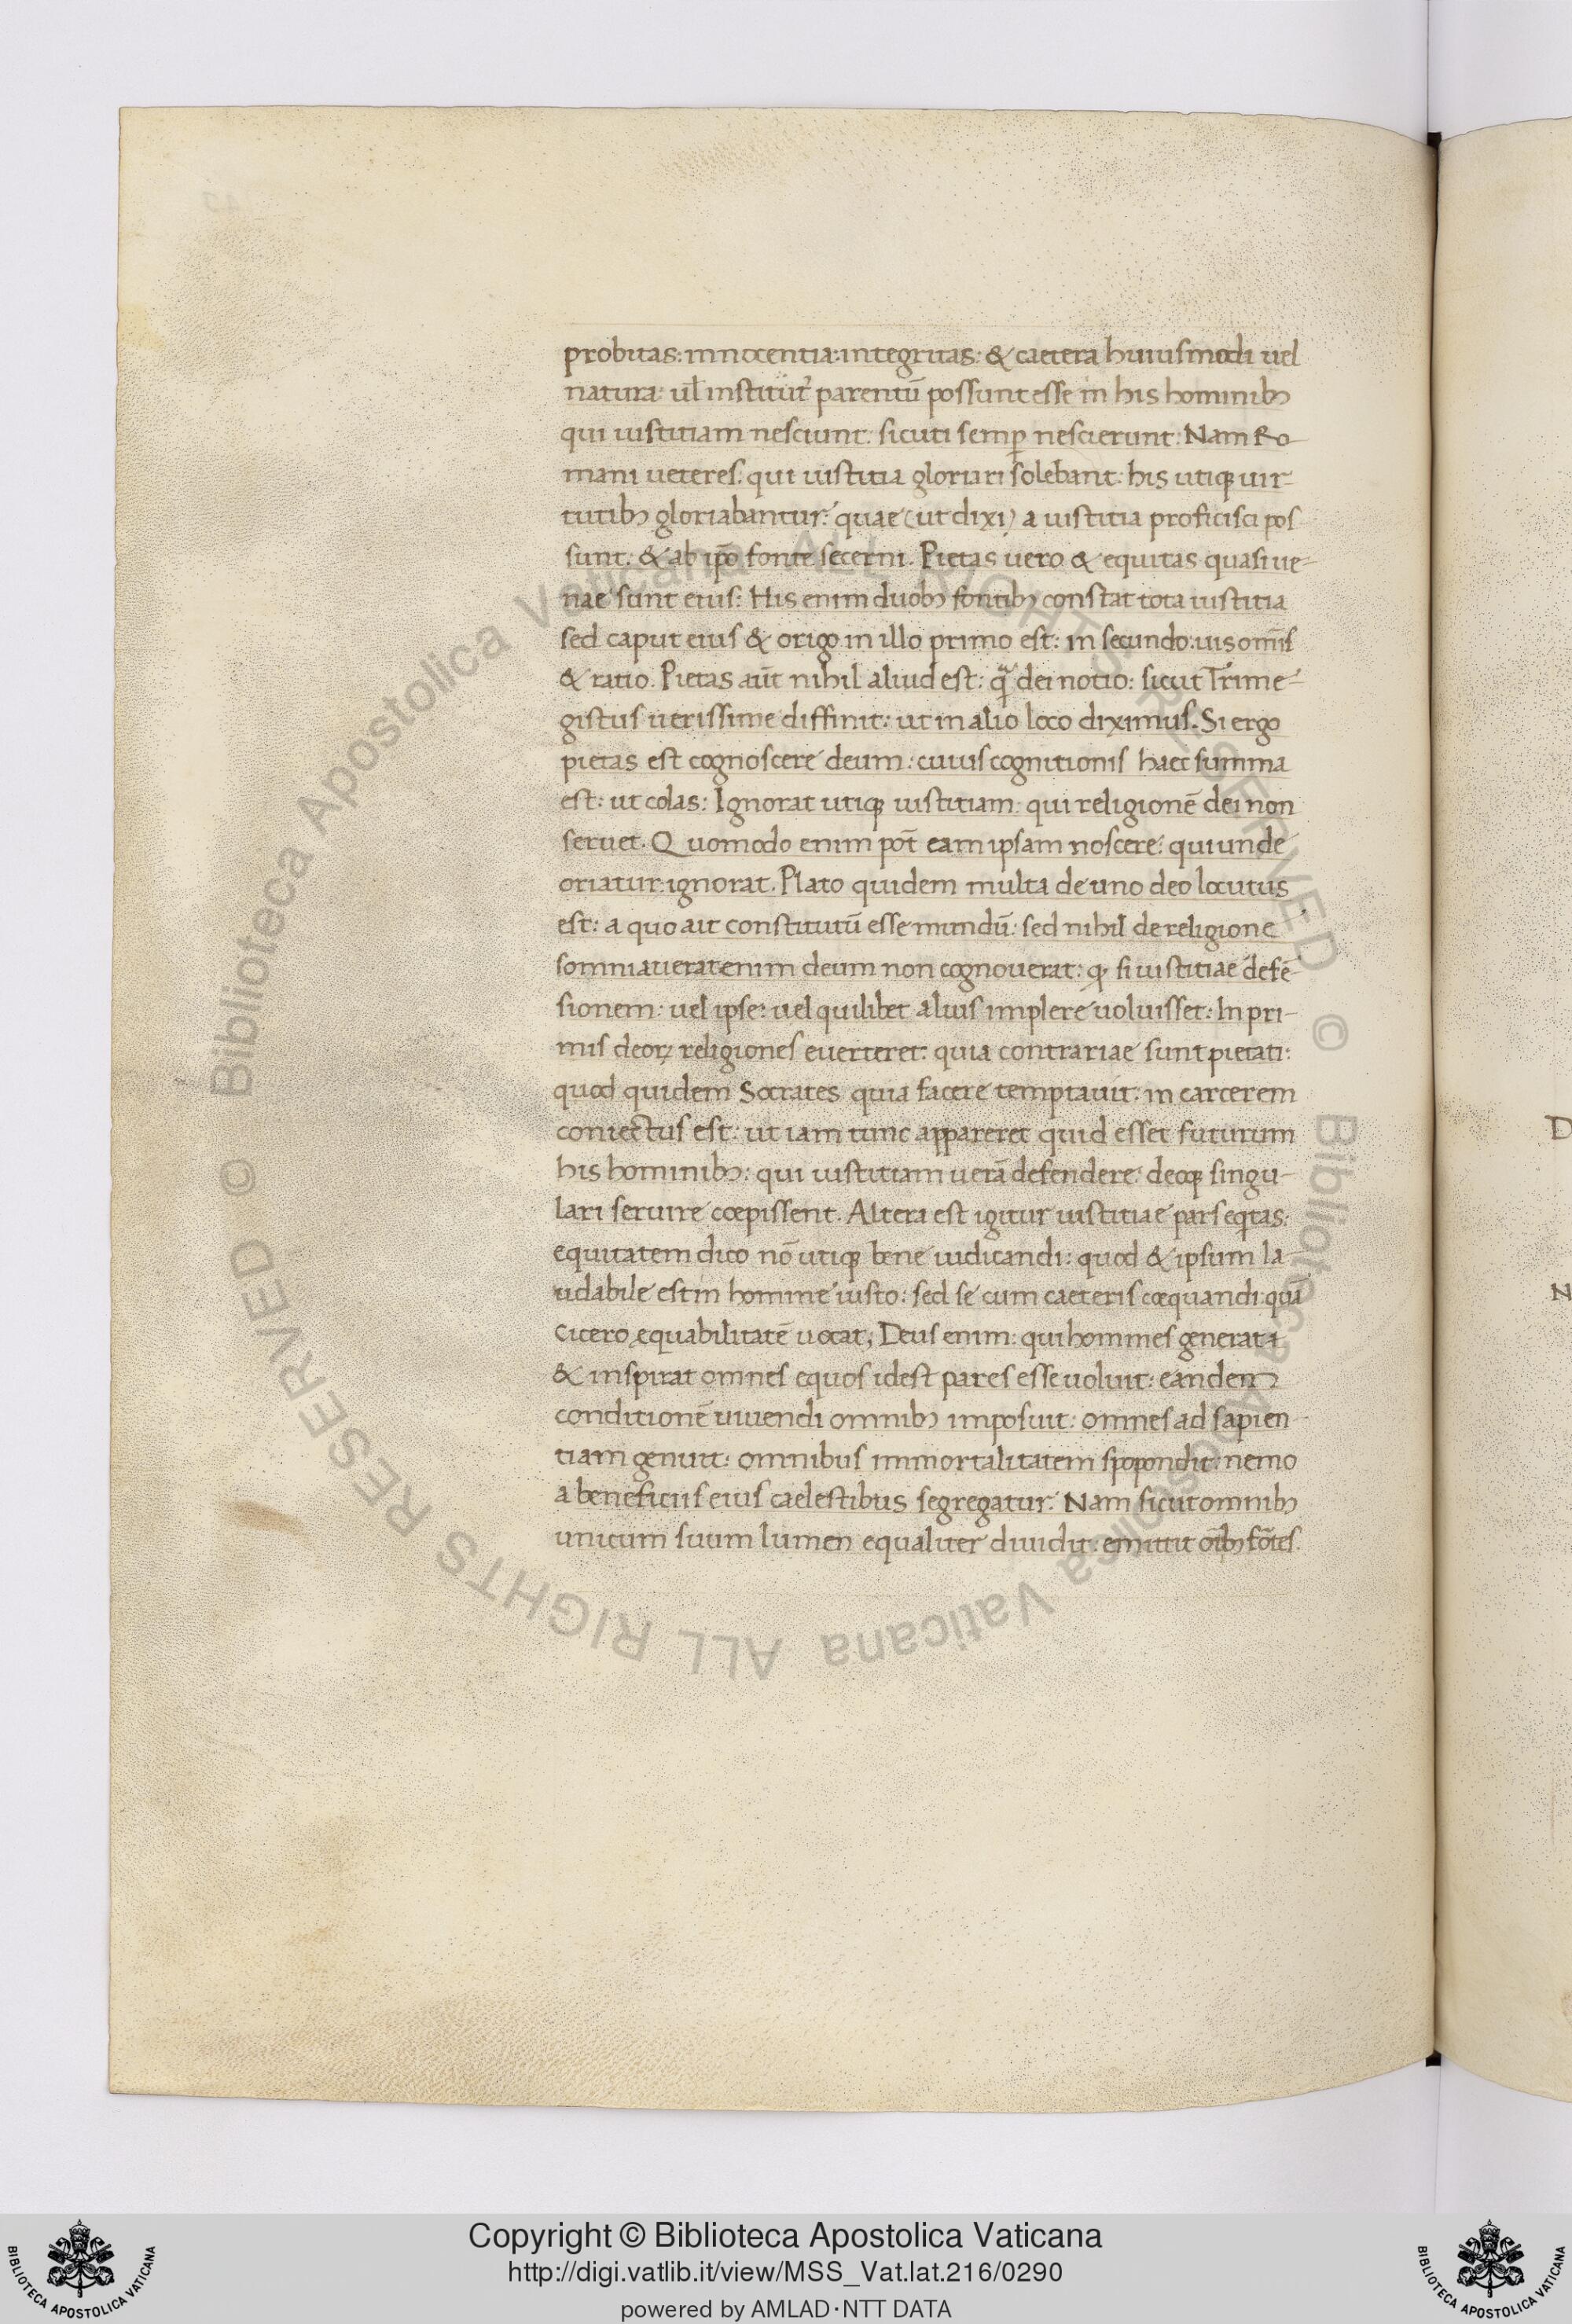 probitas: innocentia: integritas: & caetera huiusmodi uel
natura: ul̄ institut᷒ parentū possunt esse in his hominibꝫ
qui iustitiam nesciunt: sicuti semꝑ nescierunt: Nam Ro-
mani ueteres: qui iustitia gloriari solebant: his utiqꝫ uir-
tutibꝫ gloriabantur: quae (ut dixi) a iustitia proficisci pos
sunt: & ab ip̄o fonte secerni. Pietas uero & equitas quasi ue-
nae sunt eius: His enim duobꝫ fontibꝫ constat tota iustitia
sed caput eius & origo in illo primo est: in secundo: uis om̄is
& ratio. Pietas aūt nihil aliud est: quā dei notio: sicut Trime-
gistus uerissime diffinit: ut in alio loco diximus. Si ergo
pietas est cognoscere deum: cuius cognitionis haec summa
est: ut colas: Ignorat utiqꝫ iustitiam: qui religionē dei non
seruet. Quomodo enim pōt eam ipsam noscere: qui unde
oriatur: ignorat. Plato quidem multa de uno deo locutus
est: a quo ait constitutū esse mundū: sed nihil de religione
somniauerat enim deum non cognouerat: qꝫ si iustitiae defē-
sionem: uel ipse: uel quilibet alius implere uoluisset: In pri-
mis deoꝝ religiones euerteret: quia contrariae sunt pietati:
quod quidem Socrates quia facere temptauit: in carcerem
coniectus est: ut iam tunc appareret quid esset futurum
his hominibꝫ: qui iustitiam uerā defendere: deoqꝫ singu-
lari seruire cœpissent. Altera est igitur iustitiae pars eqͥtas:
equitatem dico nō utiqꝫ bene iudicandi: quod & ipsum la-
udabile est in homine iusto: sed se cum caeteris coequandi: quā
Cicero ęquabilitatē uocat; Deus enim: qui homines generat
& inspirat omnes equos idest pares esse uoluit: eandem
conditionē uiuendi omnibꝫ imposuit: omnes ad sapien-
tiam genuit: omnibus immortalitatem spopondit: nemo
a beneficiis eius caelestibus segregatur. Nam sicut omnibꝫ
unicum suum lumen equaliter diuidit: emittit oībꝫ fōtes
D
N
© Biblioteca Apostolica Vaticana ALL RIGHTS RESERVED © Biblioteca Apostolica Vaticana ALL RIGHTS RESERVED
BIBLIOTECA APOSTOLICA VATICANA
Copyright © Biblioteca Apostolica Vaticana
http://digi.vatlib.it/view/MSS_Vat.lat.216/0290
powered by AMLAD·NTT DATA
BIBLIOTECA APOSTOLICA VATICANA